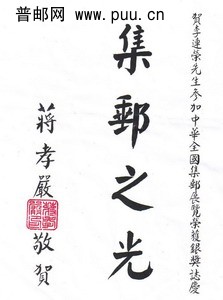 普邮网 www.puu.cn
賀李連榮先生參加中華全國集郵展覽榮獲銀獎誌慶
集郵之光
蔣孝嚴
敬賀